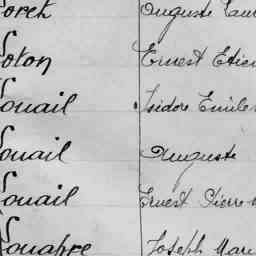 Foreh Auguste
Foton Ernest Etien
Fouail Isidore Emile
Fouail Auguste
Fouail Ernest Pierre
Fouapre Joseph Mari